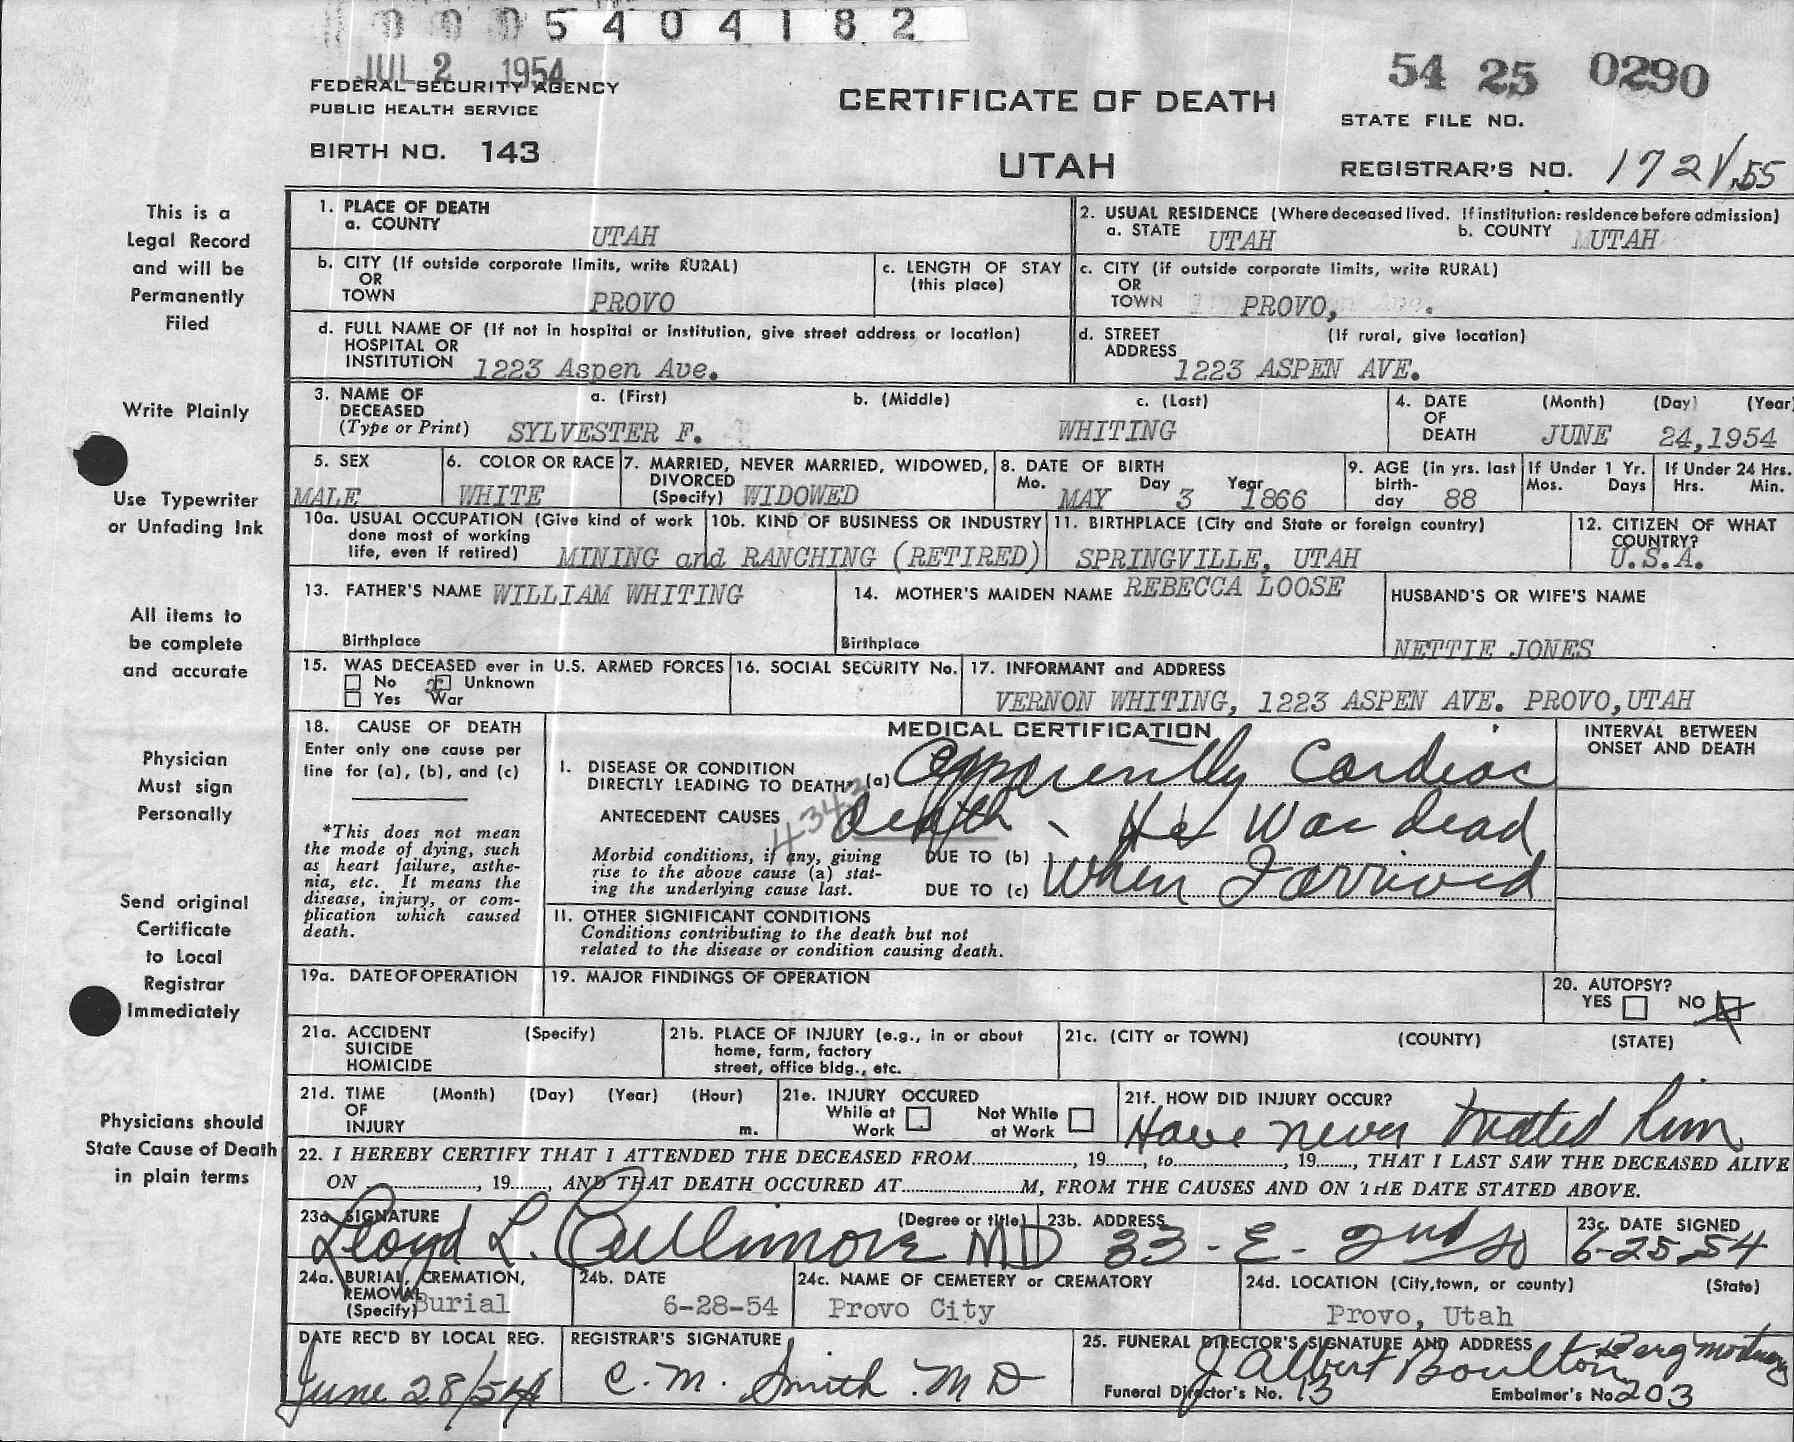 0 0 0 5 4 0 4 1 8 2
JUL 2 1954
54 25 0290
FEDERAL SECURITY AGENCY
PUBLIC HEALTH SERVICE
CERTIFICATE OF DEATH
STATE FILE NO.
BIRTH NO. 143
UTAH
REGISTRAR'S NO. 172
This is a
Legal Record
and will be
Permanently
Filed
Write Plainly
Use Typewriter
or Unfading Ink
All items to
be complete
and accurate
Physician
Must sign
Personally
Send original
Certificate
to Local
Registrar
Immediately
Physicians should
State Cause of Death
in plain terms
1. PLACE OF DEATH
a. COUNTY
UTAH
2. USUAL RESIDENCE (Where deceased lived. If institution: residence before admission)
a. STATE UTAH b. COUNTY UTAH
b. CITY (If outside corporate limits, write RURAL)
OR
TOWN PROVO
c. LENGTH OF STAY
(this place)
c. CITY (if outside corporate limits, write RURAL)
OR
TOWN PROVO,
d. FULL NAME OF (If not in hospital or institution, give street address or location)
HOSPITAL OR
INSTITUTION 1223 Aspen Ave.
d. STREET (If rural, give location)
ADDRESS
1223 ASPEN AVE.
3. NAME OF a. (First) b. (Middle) c. (Last)
DECEASED
(Type or Print) SYLVESTER F. WHITING
4. DATE (Month) (Day) (Year)
OF
DEATH JUNE 24,1954
5. SEX
MALE
6. COLOR OR RACE
WHITE
7. MARRIED, NEVER MARRIED, WIDOWED,
DIVORCED
(Specify) WIDOWED
8. DATE OF BIRTH
Mo. Day Year
MAY 3 1866
9. AGE (in yrs. last
birth-
day 88
If Under 1 Yr.
Mos. Days
If Under 24 Hrs.
Hrs. Min.
10a. USUAL OCCUPATION (Give kind of work
done most of working
life, even if retired)
10b. KIND OF BUSINESS OR INDUSTRY
MINING and RANCHING (RETIRED)
11. BIRTHPLACE (City and State or foreign country)
SPRINGVILLE, UTAH
12. CITIZEN OF WHAT
COUNTRY?
U.S.A.
13. FATHER'S NAME WILLIAM WHITING
Birthplace
14. MOTHER'S MAIDEN NAME REBECCA LOOSE
Birthplace
HUSBAND'S OR WIFE'S NAME
NETTIE JONES
15. WAS DECEASED ever in U.S. ARMED FORCES
No Unknown
Yes War
16. SOCIAL SECURITY No.
17. INFORMANT and ADDRESS
VERNON WHITING, 1223 ASPEN AVE. PROVO,UTAH
18. CAUSE OF DEATH
Enter only one cause per
line for (a), (b), and (c)
*This does not mean
the mode of dying, such
as heart failure, asthe-
nia, etc. It means the
disease, injury, or com-
plication which caused
death.
MEDICAL CERTIFICATION
INTERVAL BETWEEN
ONSET AND DEATH
I. DISEASE OR CONDITION
DIRECTLY LEADING TO DEATH* (a) Apparently Cardiac
ANTECEDENT CAUSES 4343 death. He was dead
Morbid conditions, if any, giving
rise to the above cause (a) stat-
ing the underlying cause last.
DUE TO (b)
DUE TO (c) When I arrived
II. OTHER SIGNIFICANT CONDITIONS
Conditions contributing to the death but not
related to the disease or condition causing death.
19a. DATE OF OPERATION
19. MAJOR FINDINGS OF OPERATION
20. AUTOPSY?
YES NO
21a. ACCIDENT (Specify)
SUICIDE
HOMICIDE
21b. PLACE OF INJURY (e.g., in or about
home, farm, factory
street, office bldg., etc.
21c. (CITY or TOWN) (COUNTY) (STATE)
21d. TIME (Month) (Day) (Year) (Hour)
OF
INJURY m.
21e. INJURY OCCURED
While at Work Not While at Work
21f. HOW DID INJURY OCCUR?
Have never treated him
22. I HEREBY CERTIFY THAT I ATTENDED THE DECEASED FROM................., 19......., to................., 19......., THAT I LAST SAW THE DECEASED ALIVE
ON ................., 19......., AND THAT DEATH OCCURED AT.................M, FROM THE CAUSES AND ON THE DATE STATED ABOVE.
23a. SIGNATURE (Degree or title)
Lloyd L. Cullimore MD
23b. ADDRESS
33 - E - 2nd So
23c. DATE SIGNED
6-25 54
24a. BURIAL, CREMATION,
REMOVAL
(Specify) Burial
24b. DATE
6-28-54
24c. NAME OF CEMETERY or CREMATORY
Provo City
24d. LOCATION (City, town, or county) (State)
Provo, Utah
DATE REC'D BY LOCAL REG.
June 28/54
REGISTRAR'S SIGNATURE
C. M. Smith M D
25. FUNERAL DIRECTOR'S SIGNATURE AND ADDRESS
J Albert Boulton Berg Mortuary
Funeral Director's No. 13 Embalmer's No. 203